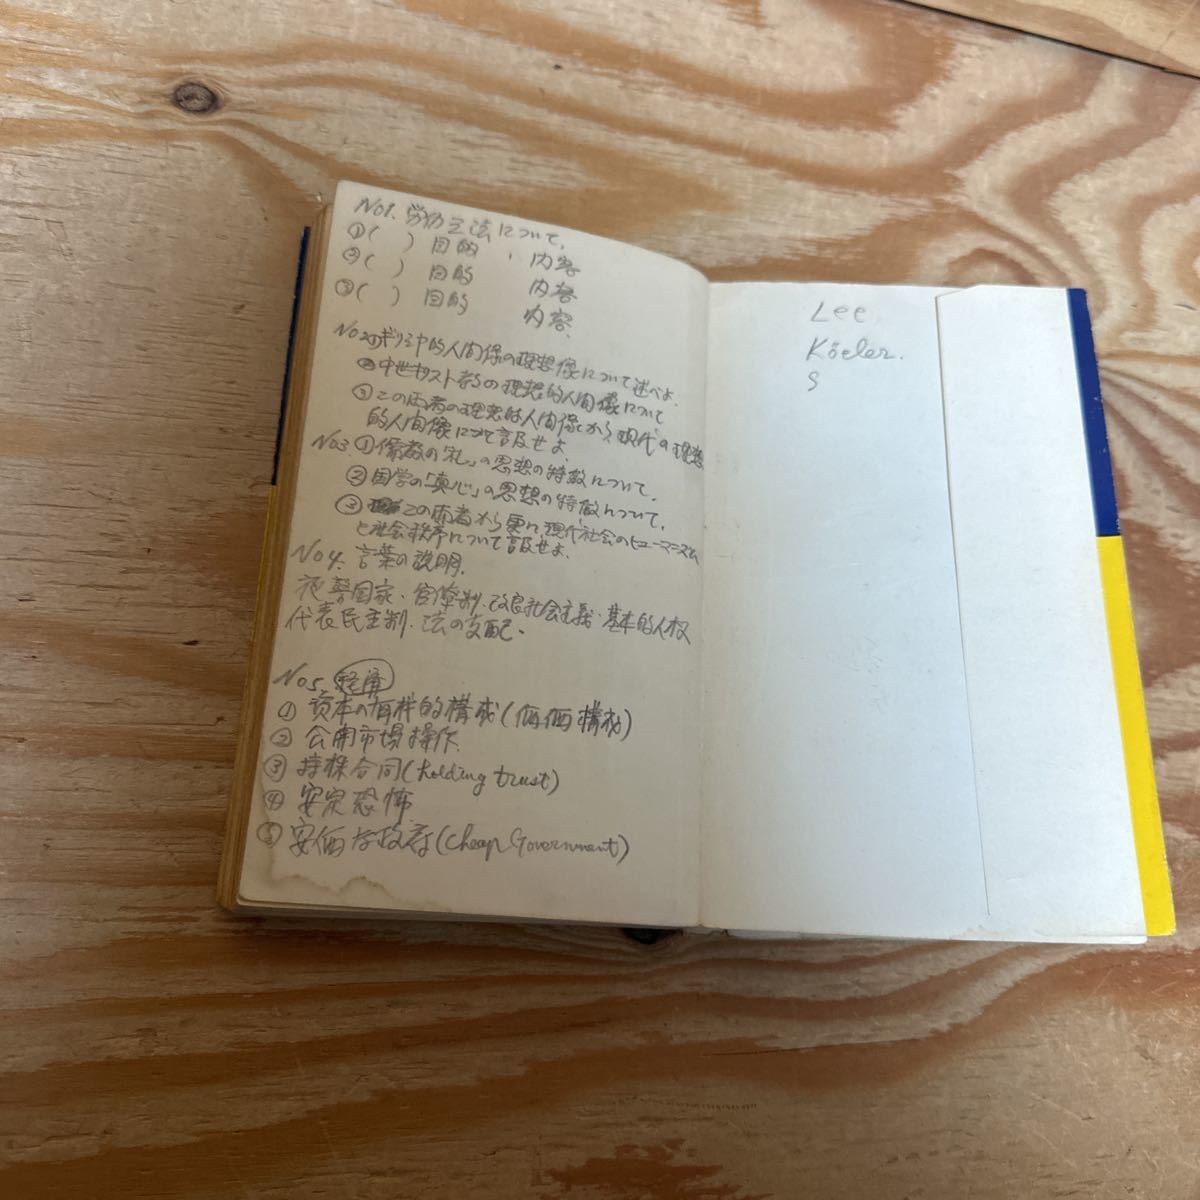 No1. 労働三法について.
①( ) 目的 、 内容
②( ) 目的 内容
③( ) 目的 内容.
No2①ギリシャ的人間像の理想像について述べよ.
②中世キリスト教の理想的人間像について
③この両者の理想的人間像から、現代の理想
的人間像について言及せよ.
No3.①儒教の「礼」の思想の特徴について.
②国学の「真心」の思想の特徴について.
③この両者から更に、現代社会のヒューマニズム
と社会秩序について言及せよ.
No4. 言葉の説明.
夜警国家・官僚制・改良社会主義・基本的人权
代表民主制・法の支配・
No5. 経済
① 資本の有機的構成(価値構成)
② 公開市場操作
③ 持株合同(holding trust)
④ 安定恐怖
⑤ 安価な政府(Cheap Government)
Lee
S